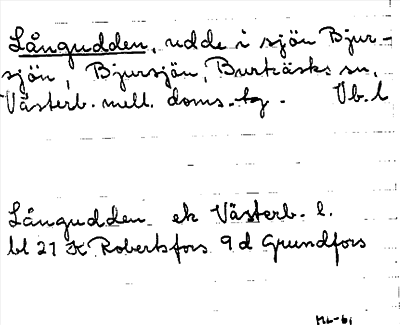 Långudden, udde i sjön Bjur-
sjön, Bjursjön, Burträsks sn,
Västerb. mell. doms. tg. Vb. l
Långudden ek Västerb. l.
bl 21 K Robertsfors 9 d Grundfors